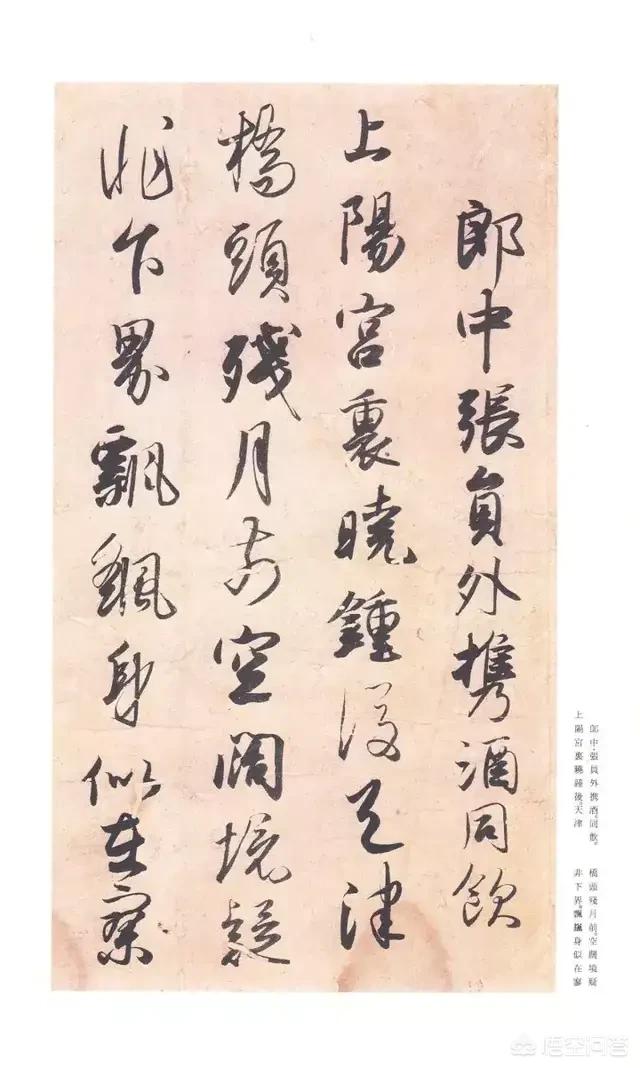 郎中張員外攜酒同飲
上陽宮裏曉鍾後天津
橋頭殘月前空闊境疑
非下界飄飄身似在寥
郎中張員外携酒同飲。
上陽宮裏曉鐘後。天津
橋頭殘月前。空闊境疑
非下界。飄飄身似在寥
悟空问答